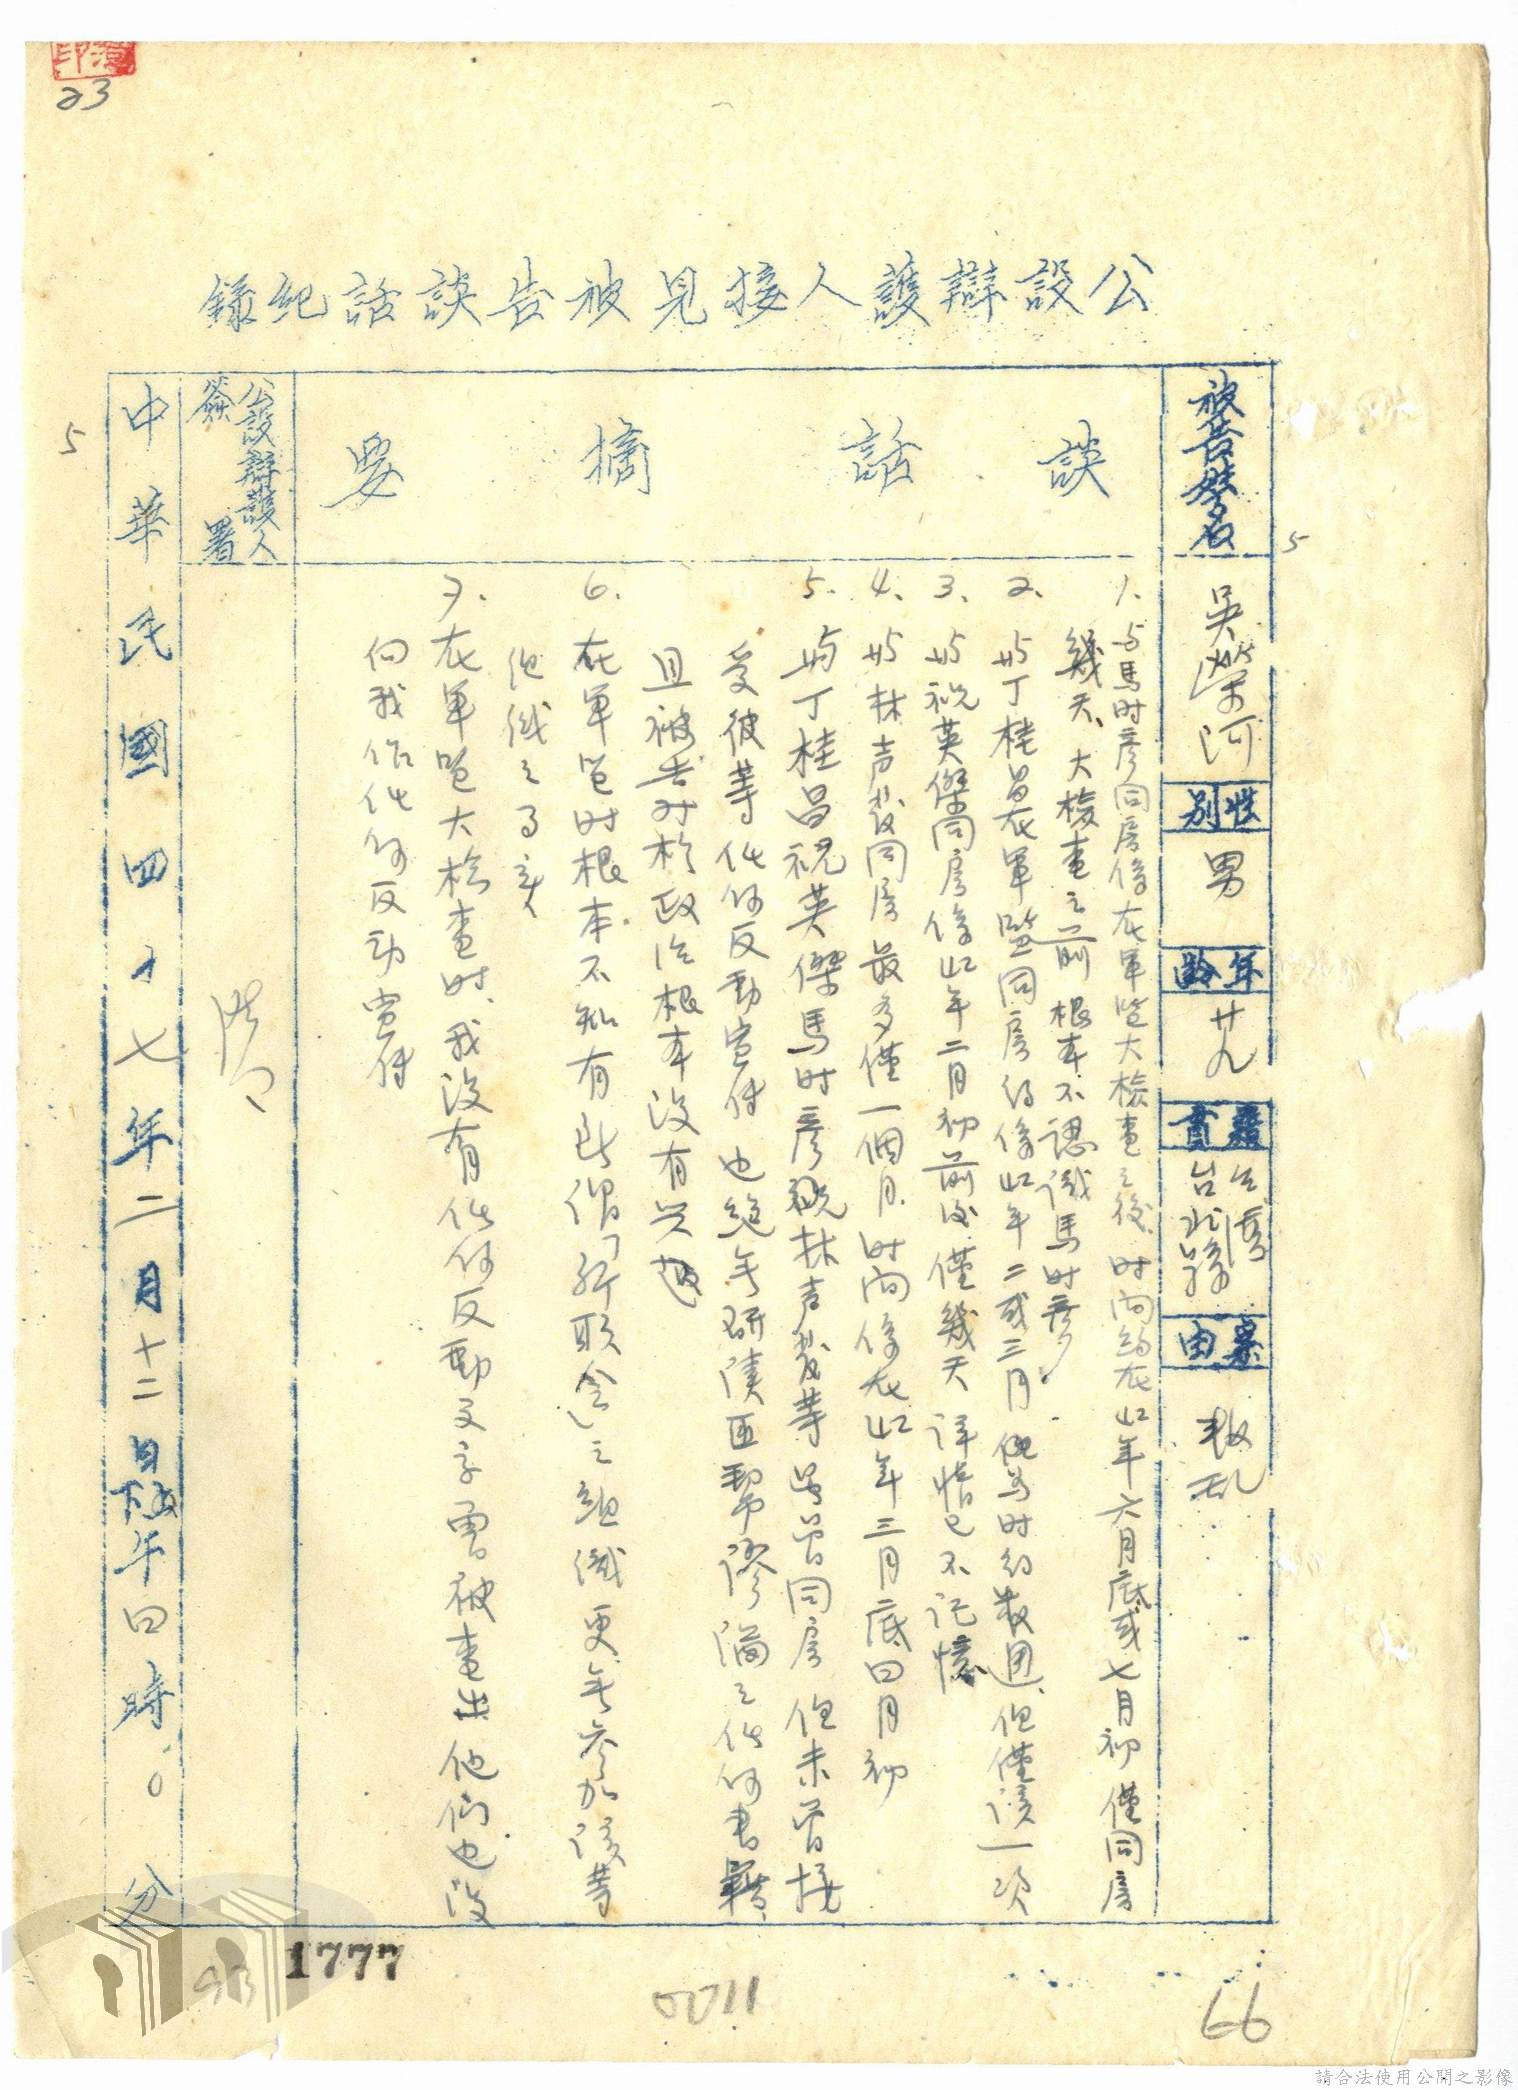 23
公設辯護人接見被告談話紀錄
被告姓名
吳榮河
性別
男
年齡
廿九
籍貫
台灣
台北縣
案由
叛乱
談話摘要
1、与馬时彥同房係在軍監大檢查之後、时间約在46年六月底或七月初僅同房
幾天、大檢查之前根本不認識馬时彥
2、與丁桂昌在軍監同房約係46年二或三月為时約數週、但僅該一次
3、與祝英傑同房係46年二月初前後僅幾天詳情已不記憶
4、與林声發同房最多僅一個月、时间係在46年三月底四月初
5、與丁桂昌祝英傑馬时彥林声發等曾同房但未曾接
受彼等任何反動宣传也絕无研讀匪幫謬論之任何書籍、
且被告对於政治根本沒有兴趣
6、在軍监时根本不知有所谓「新联会」之組織更无参加該等
组織之事实
7、在軍监大檢查时、我沒有任何反動文字曾被查出他们也沒
向我作任何反动宣传
公設辯護人
簽署
中華民國四十七年二月十二日下午四時0分
5
5
1777
0011
66
請合法使用公開之影像